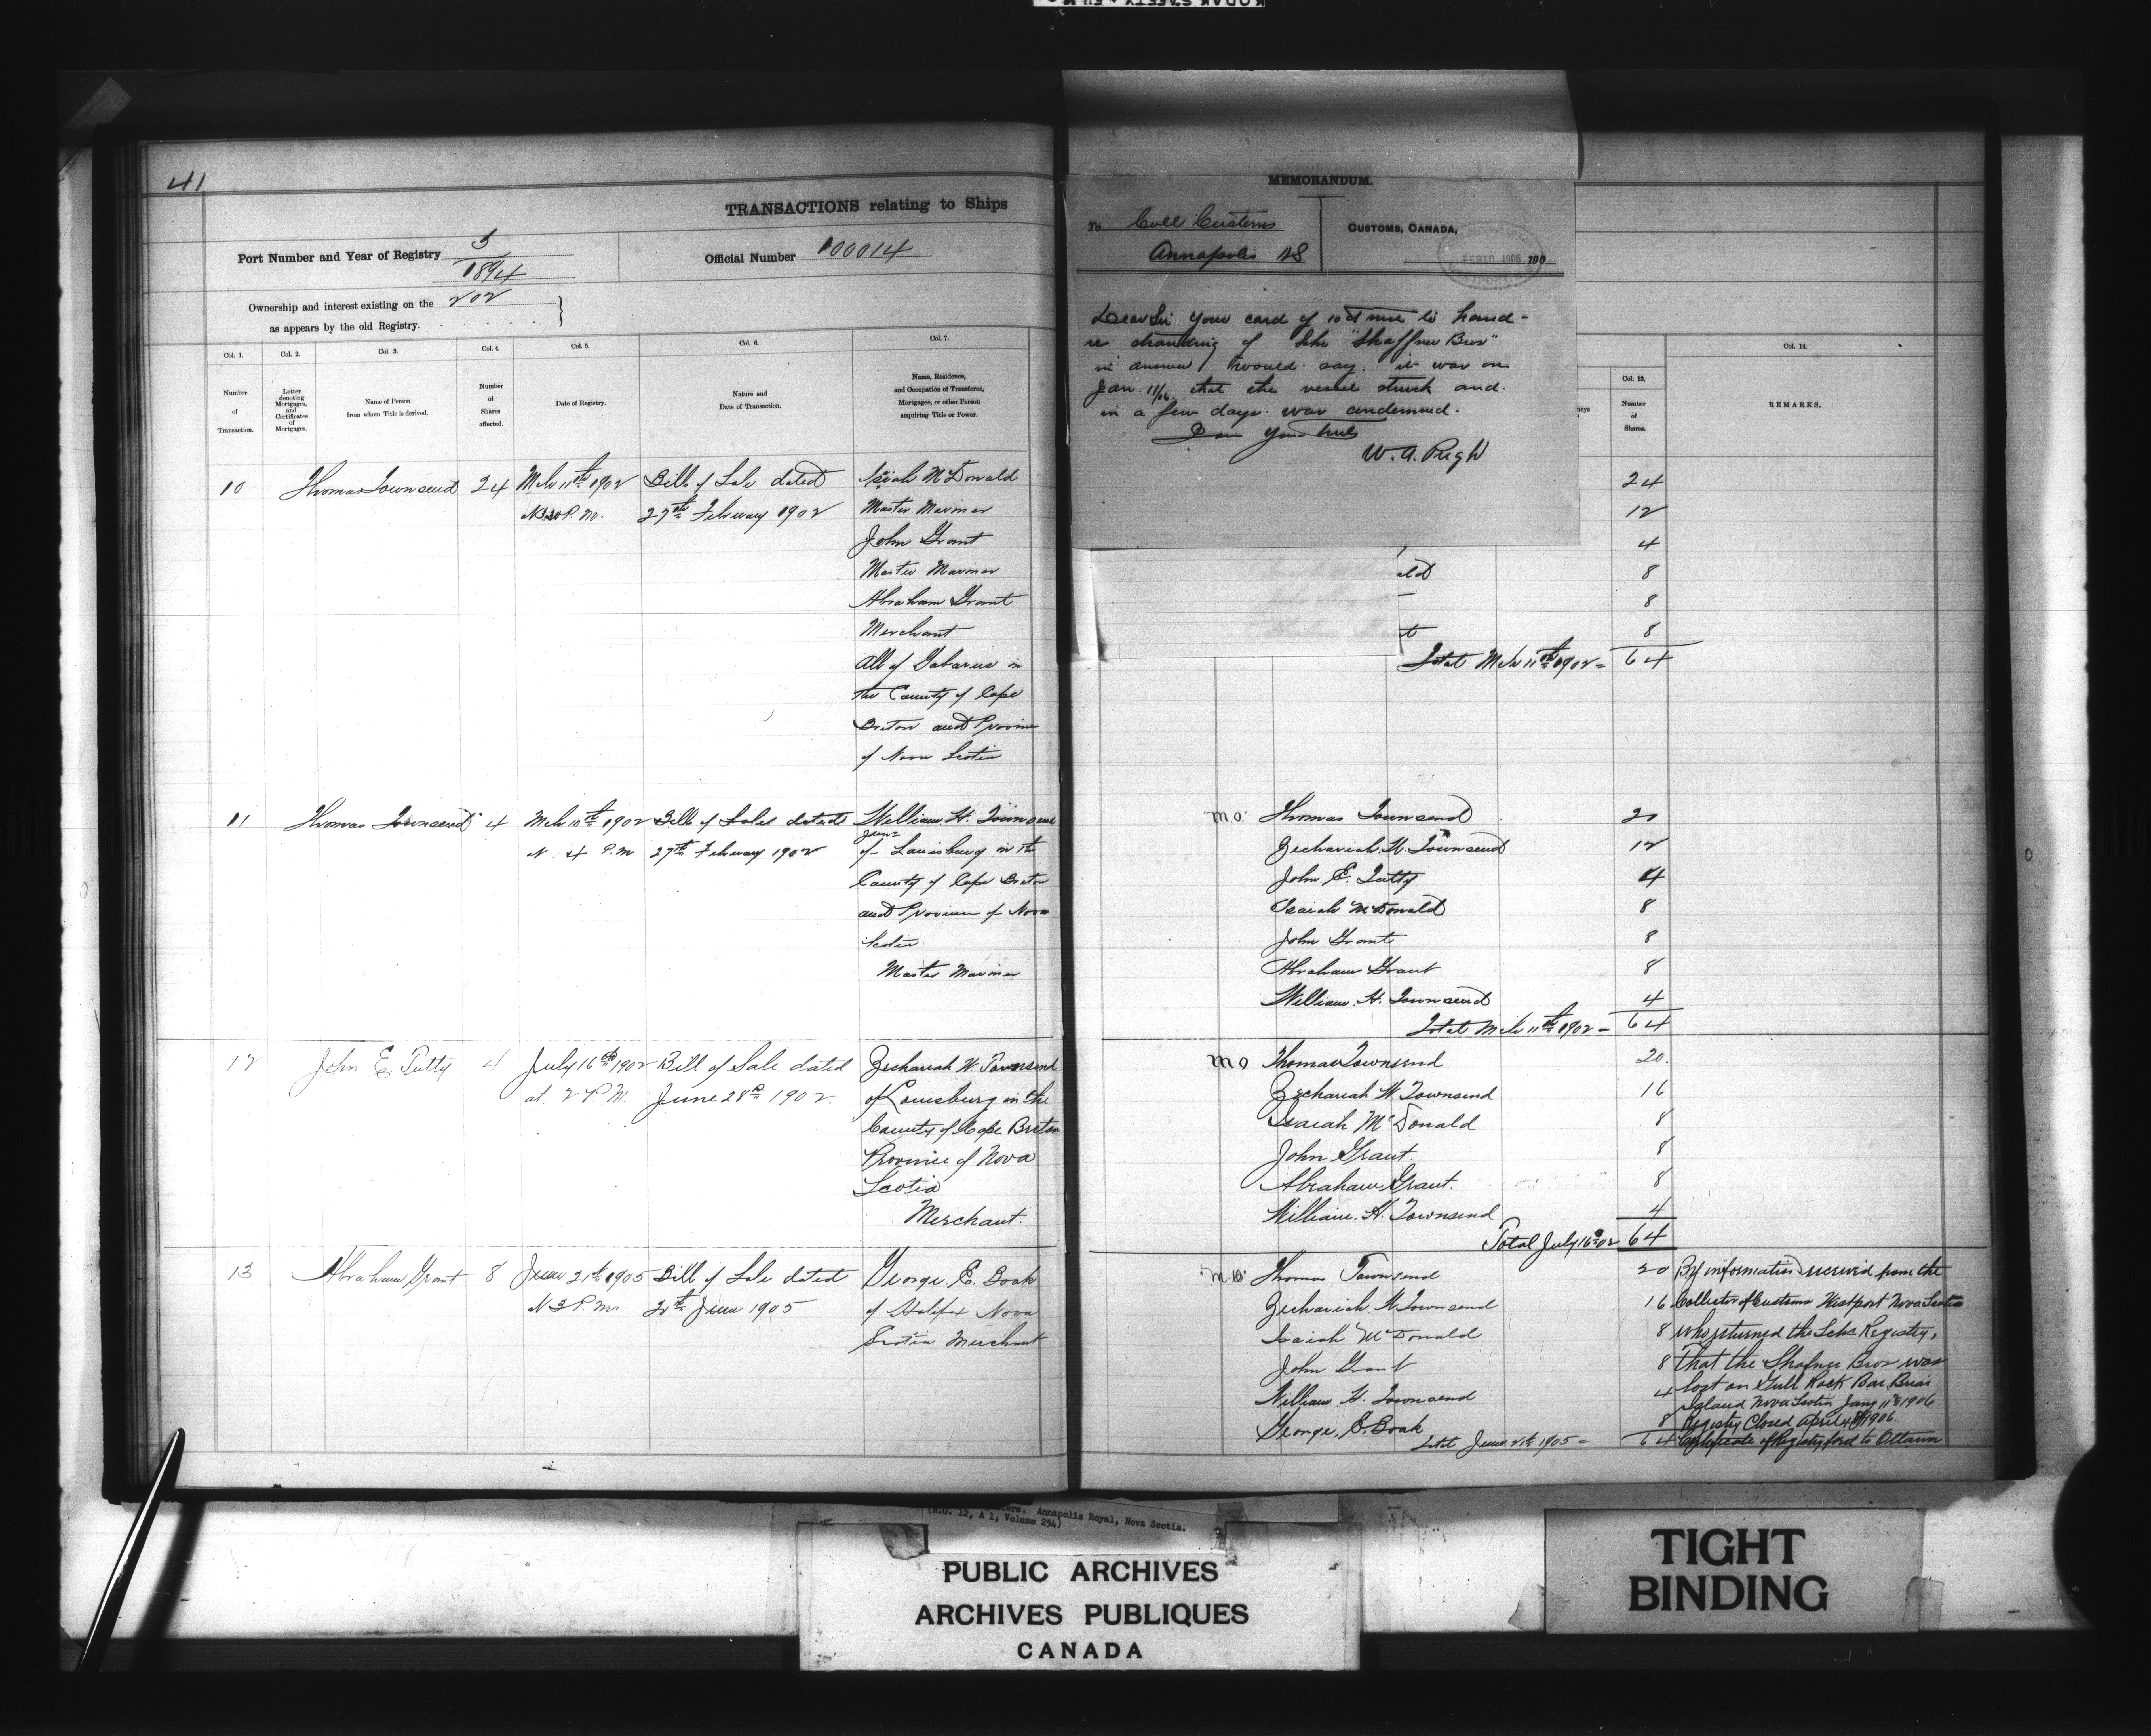 41
TRANSACTIONS relating to Ships
Port Number and Year of Registry 5/1894
Official Number 100014
Ownership and interest existing on the 202
as appears by the old Registry.
Col. 1. Col. 2. Col. 3. Col. 4. Col. 5. Col. 6. Col. 7.
Number of Transaction.
Letter denoting Mortgages, and Certificates of Mortgages.
Name of Person from whom Title is derived.
Number of Shares affected.
Date of Registry.
Nature and Date of Transaction.
Name, Residence, and Occupation of Transferee, Mortgagee, or other Person acquiring Title or Power.
10 Thomas Townsend 24 Mch 11th 1902 Bill of Sale dated Isiah McDonald
P.M. 27th February 1902 Master Mariner
John Grant
Master Mariner
Abraham Grant
Merchant
All of Gabarus in
the County of Cape
Breton and Province
of Nova Scotia
11 Thomas Townsend 4 Mch 11th 1902 Bill of Sale dated William H. Townsend
Junr
4 P.M 27th February 1902 of Louisburg in the
County of Cape Breton
and Province of Nova
Scotia
Master Mariner
12 John E Tutty 4 July 16th 1902 Bill of Sale dated Zechariah W. Townsend
at 2 P.M. June 28th 1902. of Louisburg in the
County of Cape Breton
Province of Nova
Scotia
Merchant.
13 Abraham Grant 8 June 21st 1905 Bill of Sale dated George E. Boak
3 P.M. June 1905 of Halifax Nova
Scotia Merchant
MEMORANDUM.
To Coll Customs
Annapolis NS
CUSTOMS, CANADA,
FEB 10 1906 190
Dear Sir your card of 10th to hand -
re stranding of Schr "Shaffner Bros"
in answer I would say. it was on
Jan. 11/06 that the vessel struck and.
in a few days. was condemned.
I am Yours truly
W. A. Pugh
Col. 13. Col. 14.
Number of Shares.
REMARKS.
24
12
4
ald 8
8
t 8
Total Mch 11th 1902 = 64
Mo Thomas Townsend 20
Zechariah W. Townsend 12
John E. Tutty 4
Isaiah McDonald 8
John Grant 8
Abraham Grant 8
William. H. Townsend 4
Total Mch 11th 1902 = 64
Mo Thomas Townsend 20.
Zechariah W. Townsend 16
Isaiah McDonald 8
John Grant. 8
Abraham Grant. 8
William. H. Townsend 4
Total July 16th 02 64
Mo Thomas Townsend 20
Zechariah W. Townsend 16
Isaiah McDonald 8
John Grant 8
William H. Townsend 4
George. E. Boak 8
Total June 21st 1905 = 64
By information received from the
Collector of Customs Westport Nova Scotia
who returned the Schs Registry,
that the Shafner Bros was
lost on Gull Rock Bar Briar
Island Nova Scotia Jany 11th 1906
Registry Closed April 4th 1906.
Certificate of Registry ford to Ottawa
Annapolis Royal, Nova Scotia.
(R.G. 12, A 1, Volume 254)
PUBLIC ARCHIVES
ARCHIVES PUBLIQUES
CANADA
TIGHT
BINDING